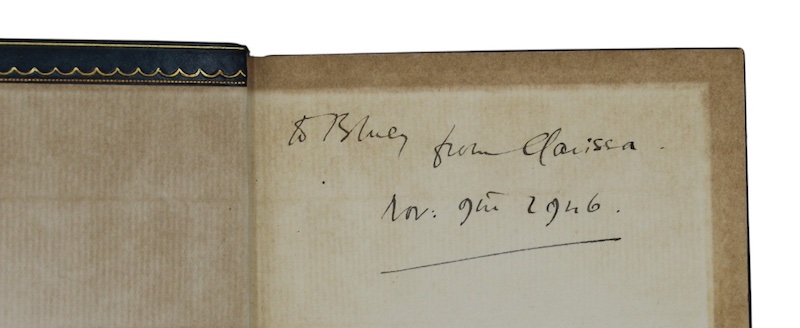 to Bluey from Clarissa.
Nov: 9th 1946.